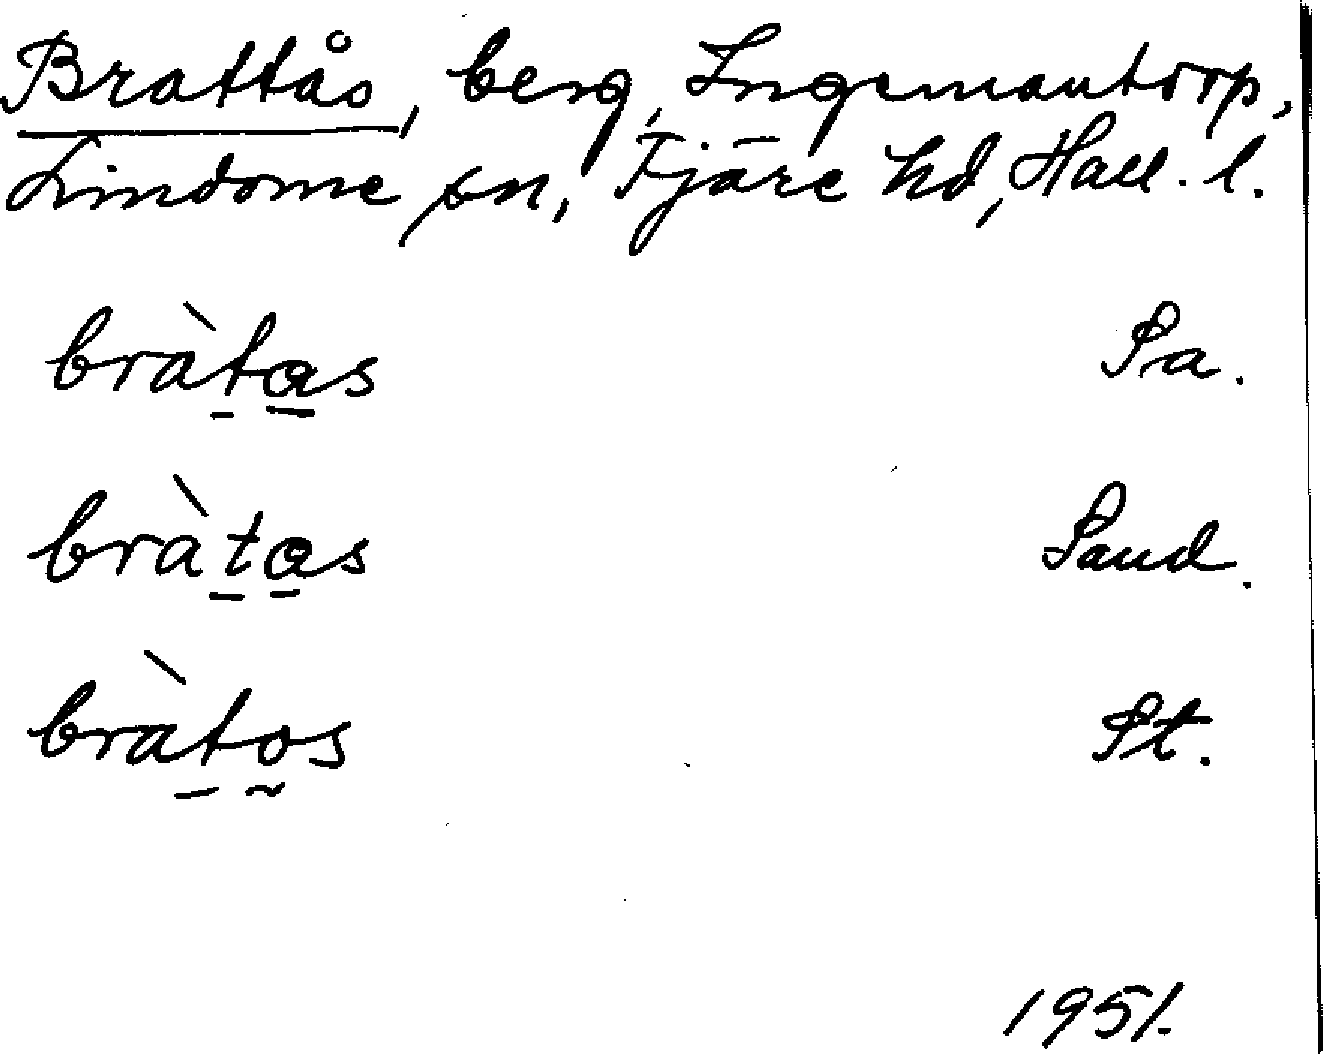 Brattås, berg, Ingemantorp,
Lindome sn, Fjäre hd, Hall. l.
bràtas Pa.
bràtas Paud.
bràtos Pt.
1951.